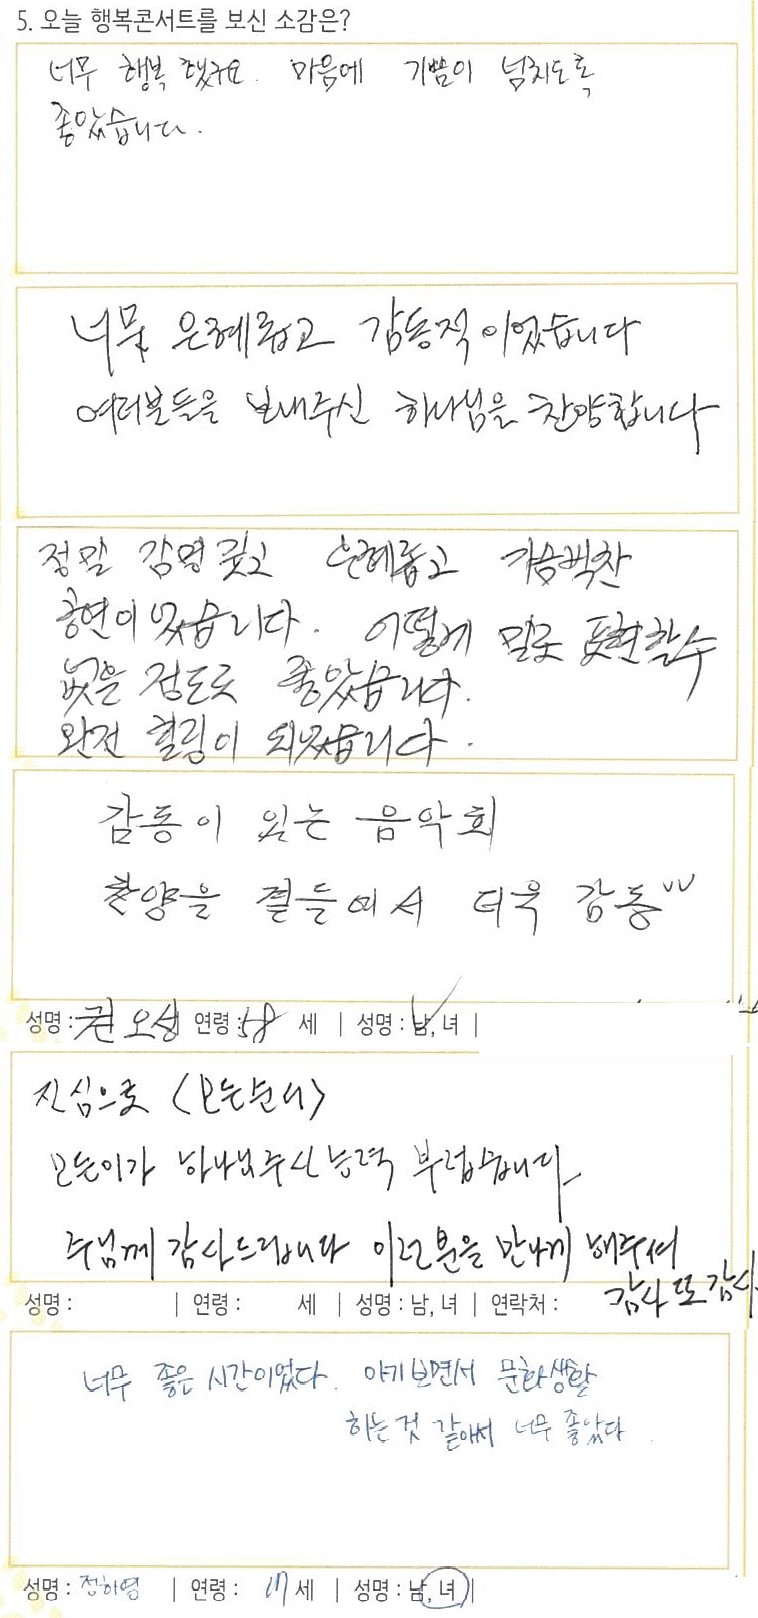 5. 오늘 행복콘서트를 보신 소감은?
너무 행복했구요. 마음에 기쁨이 넘치도록
좋았습니다.
너무 은혜롭고 감동적이었습니다
여러분들을 보내주신 하나님을 찬양합니다
정말 감명깊고 은혜롭고 가슴벅찬
공연이었습니다. 어떻게 말로 표현할수
없을 정도로 좋았습니다.
완전 힐링이 되었습니다.
감동이 있는 음악회
찬양을 곁들여서 더욱 감동^^
성명 : 권오성 연령 : 58 세 | 성명 : 남, 녀 |
진심으로 <모든분이>
모든이가 하나님주신능력 부럽습니다
주님께 감사드립니다 이런분을 만나게 해주셔
감사 또 감사.
성명 : | 연령 : 세 | 성명 : 남, 녀 | 연락처 :
너무 좋은 시간이었다. 아기보면서 문화생활
하는것 같아서 너무 좋았다.
성명 : 정하영 | 연령 : 세 | 성명 : 남, 녀 |